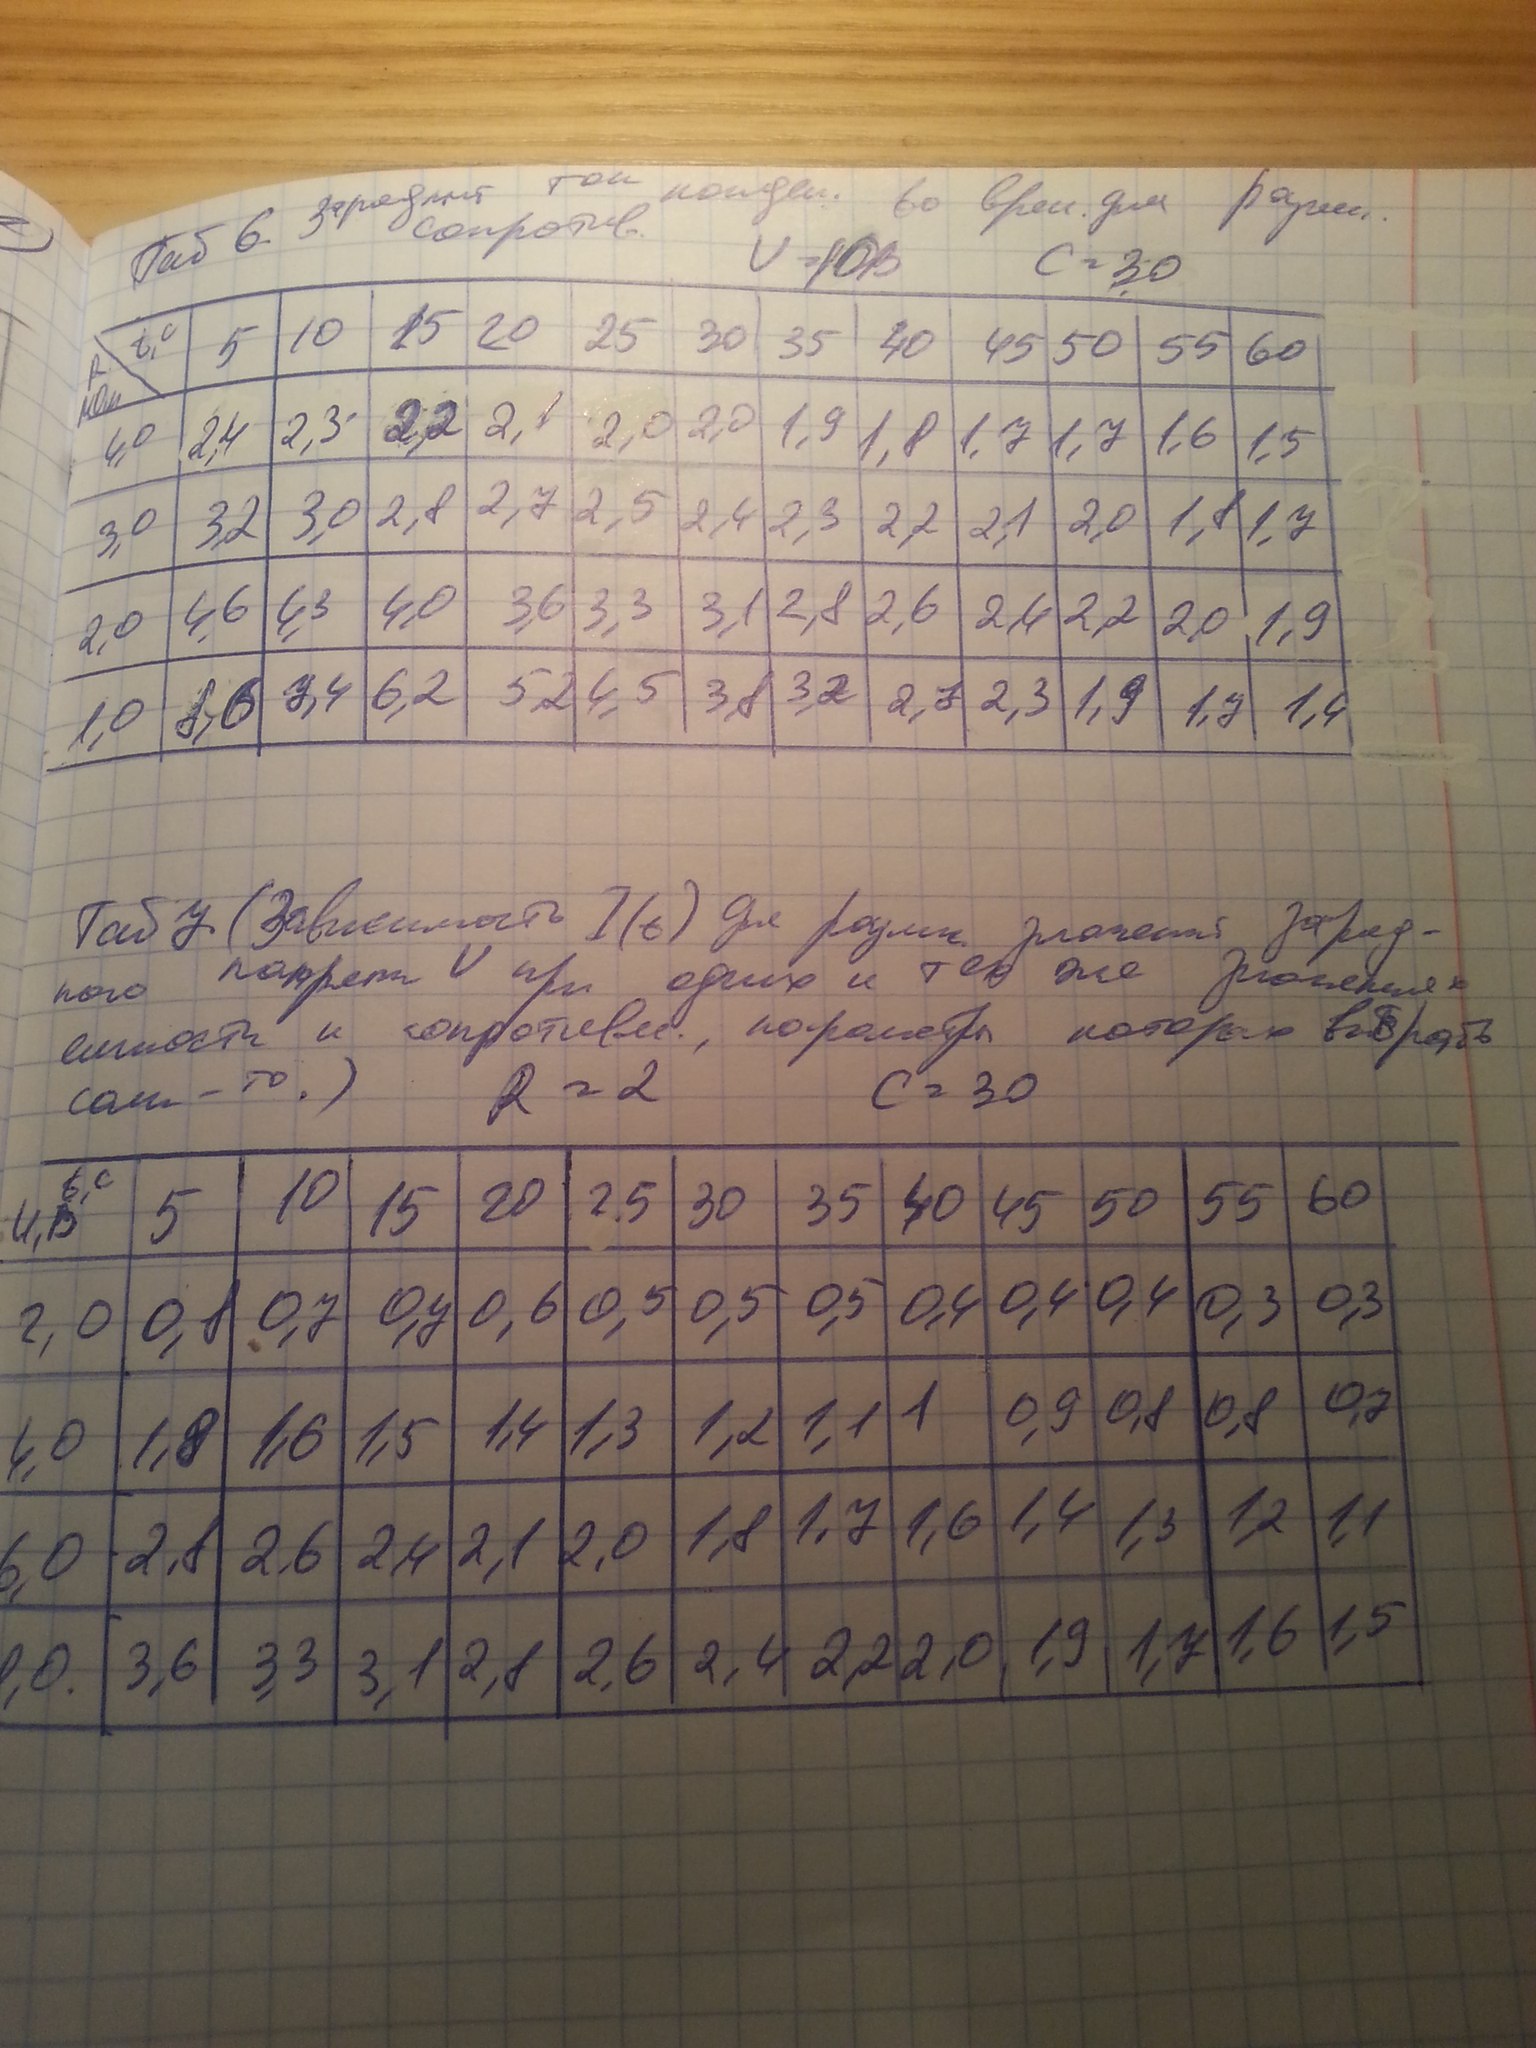 Таб 6. Зарядный ток конден. во врем. для разных.
сопротив.
U = 10В C = 30
R МОм t, с 5 10 15 20 25 30 35 40 45 50 55 60
4,0 2,4 2,3 2,2 2,1 2,0 2,0 1,9 1,8 1,7 1,7 1,6 1,5
3,0 3,2 3,0 2,8 2,7 2,5 2,4 2,3 2,2 2,1 2,0 1,8 1,7
2,0 4,6 4,3 4,0 3,6 3,3 3,1 2,8 2,6 2,4 2,2 2,0 1,9
1,0 8,6 7,4 6,2 5,2 4,5 3,8 3,2 2,7 2,3 1,9 1,7 1,4
Таб 7. (Зависимость I(t) для разли. значений заряд-
ного напряж U при одних и тех же значениях
емкости и сопротивл., параметры которых выбрать
сам-то.) R = 2 C = 30
U, В t, с 5 10 15 20 25 30 35 40 45 50 55 60
2,0 0,8 0,7 0,7 0,6 0,5 0,5 0,5 0,4 0,4 0,4 0,3 0,3
4,0 1,8 1,6 1,5 1,4 1,3 1,2 1,1 1 0,9 0,8 0,8 0,7
6,0 2,8 2,6 2,4 2,1 2,0 1,8 1,7 1,6 1,4 1,3 1,2 1,1
8,0. 3,6 3,3 3,1 2,8 2,6 2,4 2,2 2,0 1,9 1,7 1,6 1,5